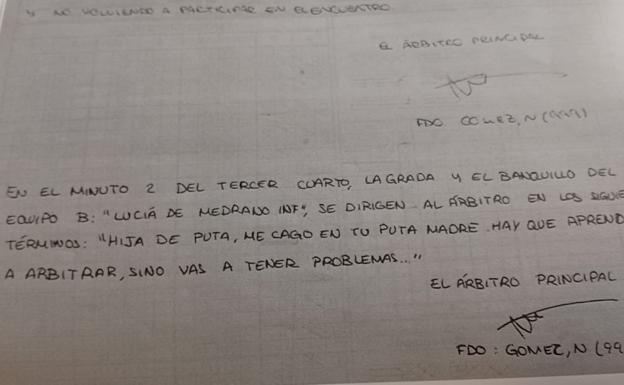 Y NO VOLVIENDO A PARTICIPAR EN EL ENCUENTRO
EL ÁRBITRO PRINCIPAL
FDO. GOMEZ, N (999)
EN EL MINUTO 2 DEL TERCER CUARTO, LA GRADA Y EL BANQUILLO DEL
EQUIPO B: "LUCIÁ DE MEDRANO INF", SE DIRIGEN AL ÁRBITRO EN LOS SIGUIE
TÉRMINOS: "HIJA DE PUTA, ME CAGO EN TU PUTA MADRE. HAY QUE APREND
A ARBITRAR, SINO VAS A TENER PROBLEMAS..."
EL ÁRBITRO PRINCIPAL
FDO: GOMEZ, N (99